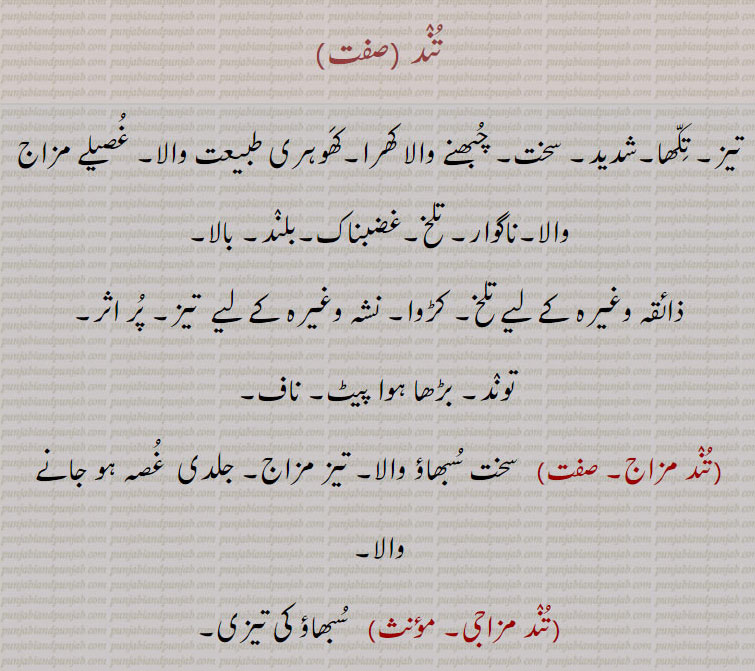 تُنْد (صفت)
تیز۔ تِکّھا۔شدید۔ سخت۔ چُبھنے والا کھرا۔کھَوہری طبیعت والا۔ غُصیلے مزاج
والا۔ناگوار۔ تلخ۔غضبناک۔بلنْد۔ بالا۔
ذائقہ وغیرہ کے لیے تلخ۔ کڑوا۔ نشہ وغیرہ کے لیے تیز۔ پُر اثر۔
تونْد۔ بڑھا ہوا پیٹ۔ ناف۔
(تُنْد مزاج۔ صفت) سخت سُبھاؤ والا۔ تیز مزاج۔ جلدی غُصہ ہو جانے
والا۔
(تُنْد مزاجی۔ مؤنث) سُبھاؤ کی تیزی۔